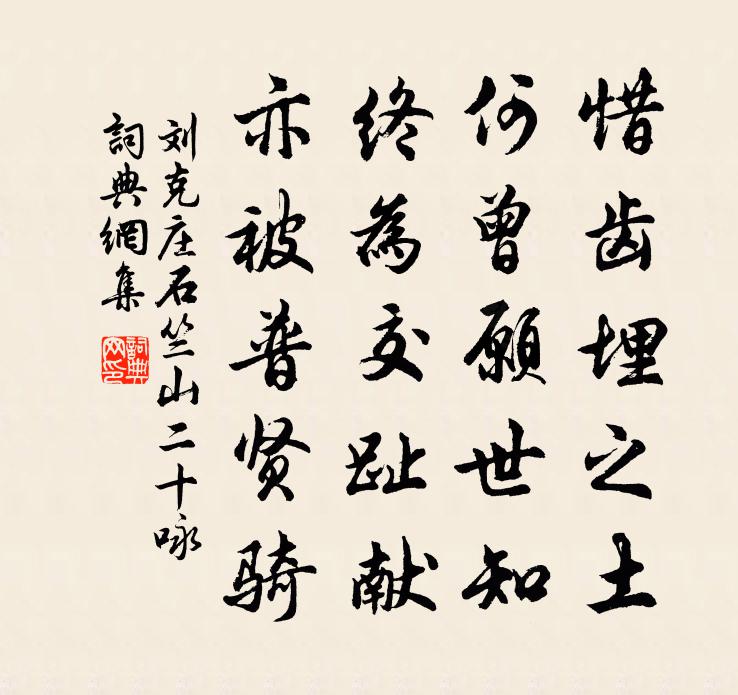 惜齿埋之土
何曾願世知
终為交趾献
亦被普贤骑
刘克庄石竺山二十咏
詞典網集
詞典
网印